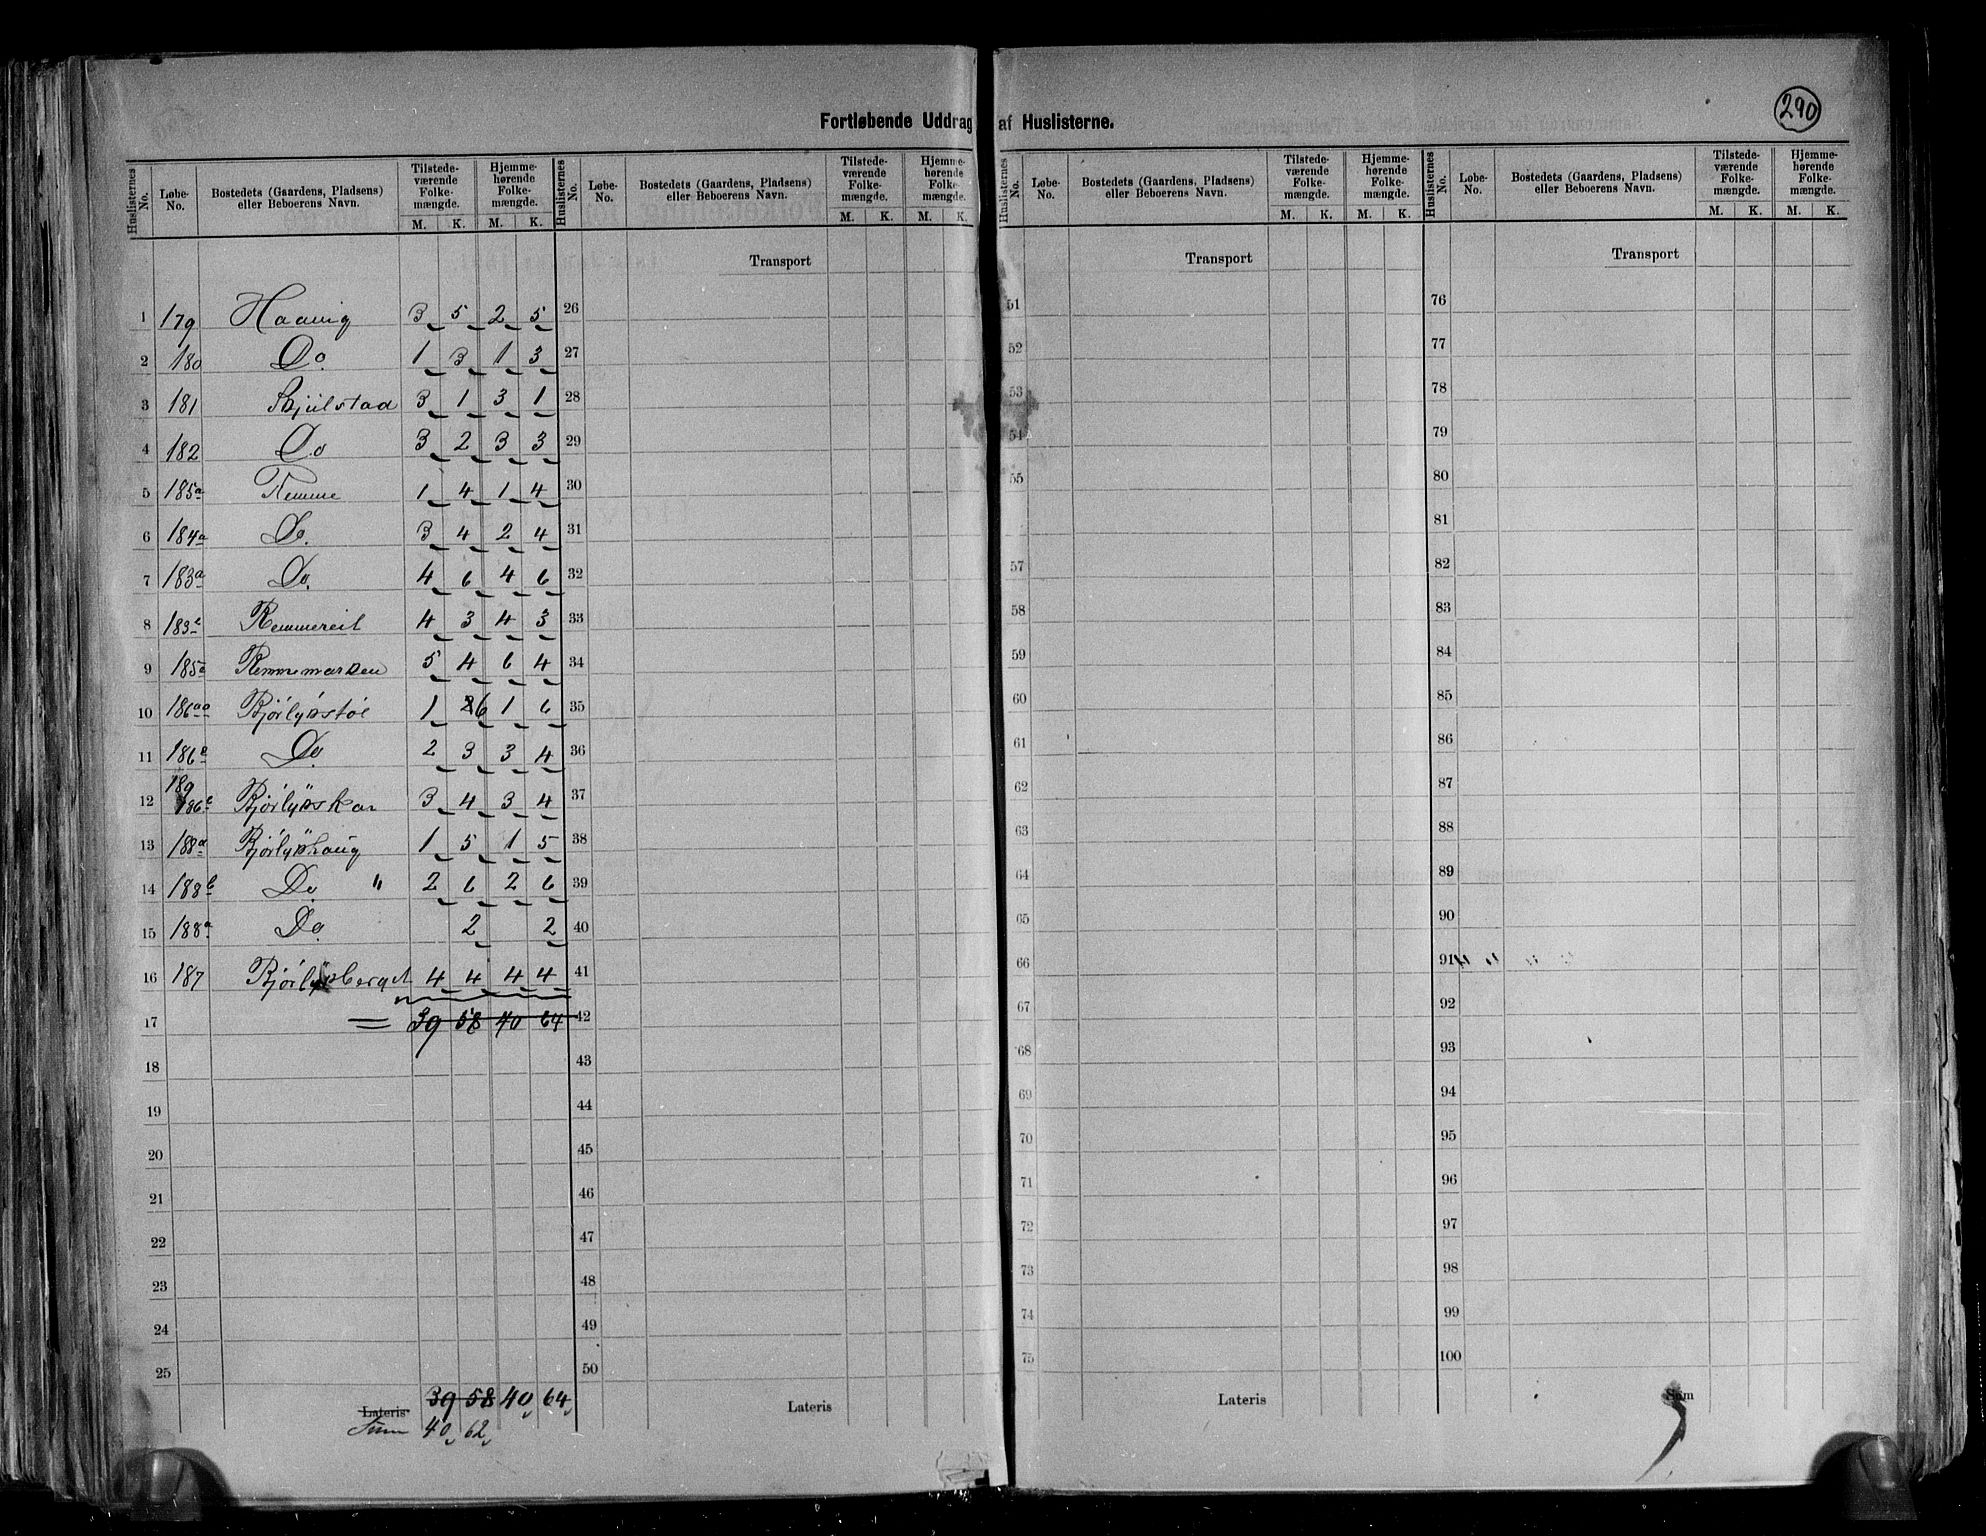 290
Fortløbende Uddrag af Huslisterne.
Huslisternes No. Løbe-No. Bostedets (Gaardens, Pladsens) eller Beboerens Navn. Tilstede-værende Folke-mængde. M. K. Hjemme-hørende Folke-mængde. M. K.
Huslisternes No. Løbe-No. Bostedets (Gaardens, Pladsens) eller Beboerens Navn. Tilstede-værende Folke-mængde. M. K. Hjemme-hørende Folke-mængde. M. K.
Huslisternes No. Løbe-No. Bostedets (Gaardens, Pladsens) eller Beboerens Navn. Tilstede-værende Folke-mængde. M. K. Hjemme-hørende Folke-mængde. M. K.
Huslisternes No. Løbe-No. Bostedets (Gaardens, Pladsens) eller Beboerens Navn. Tilstede-værende Folke-mængde. M. K. Hjemme-hørende Folke-mængde. M. K.
Transport Transport Transport
1 179 Haavig 3 5 2 5 26 51 76
2 180 Do. 1 3 1 3 27 52 77
3 181 3 1 3 1 28 53 78
4 182 Do 3 2 3 3 29 54 79
5 185a Remme 1 4 1 4 30 55 80
6 184a Do. 3 4 2 4 31 81
7 183a Do. 4 6 4 6 32 57 82
8 183c Remmereit 4 3 4 3 33 58 83
9 185a Remmemarken 5 4 6 4 34 59 84
10 186aa Bjørlykstøl 1 6 1 6 35 60 85
11 186 Do 2 3 3 4 36 61 86
12 189 186c Bjørlykskar 3 4 3 4 37 62 87
13 188a Bjørlykhaug 1 5 1 5 38 63 88
14 188b Do. " 2 6 2 6 39 64 89
15 188a Do 2 2 40 65 90
16 187 Bjørlykberget 4 4 4 4 41 66 91
17 = 39 58 40 64 42 67 92
18 43 68 93
19 44 69 94
20 45 70 95
21 46 71 96
22 47 72 97
23 48 73 98
24 49 74 99
25 50 75 100
Lateris 39 58 40 64 Lateris Lateris Sum
Sum 40 62